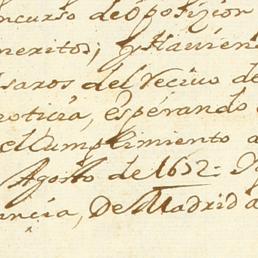 concurso de oposizion
meritos; y Haviend
del Recivo de
noticia, espérando
el Cumplimiento a
Agosto de 1652
De Madrid a